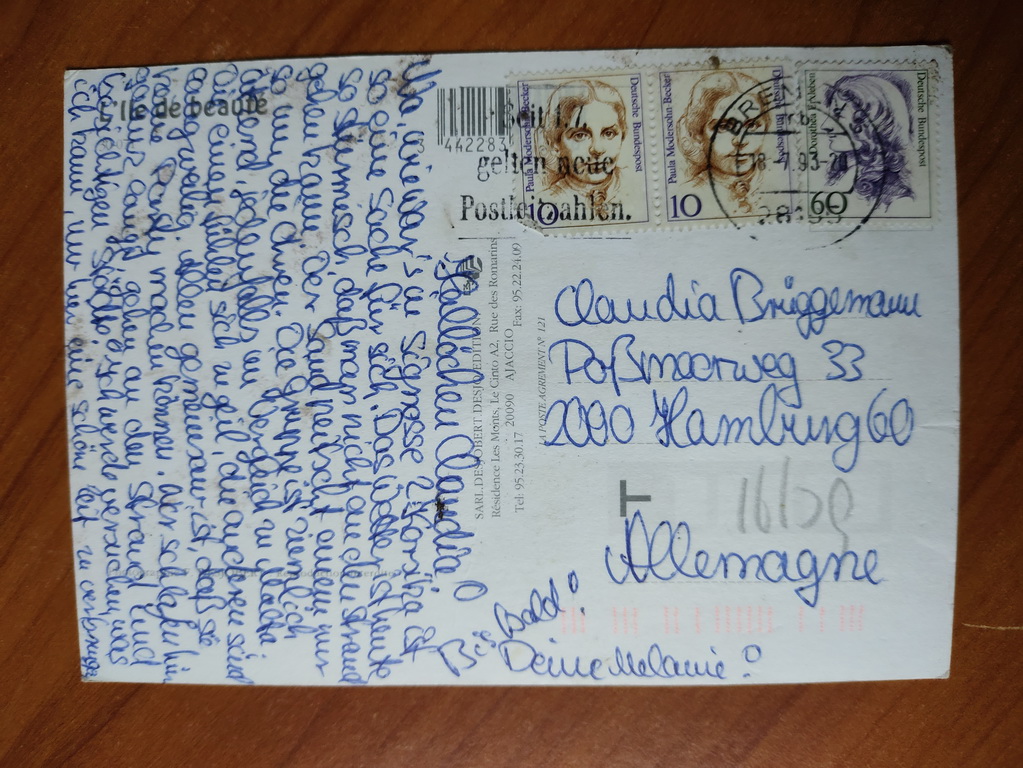 Île de beauté
3 442283
Seit 1.7.
gelten neue
Postleitzahlen.
Deutsche Bundespost
Paula Modersohn-Becker
10
Deutsche Bundespost
Paula Modersohn-Becker
10
Deutsche Bundespost
Dorothea Erxleben
60
BREMEN
18.7.93-20
Hallöchen Claudia!
Na wie war's in ? Korsika ist
so eine Sache für sich. Das Wetter ist heute
so stürmisch, daß man nicht an den Strand
gehen kann. Der Sand peitscht einem nur
so um die Ohren. Die Gruppe ist ziemlich
ätzend, jedenfalls im Vergleich zu Ibiza.
geil, die anderen sind
Allen gemeinsam ist, daß sie
keine Party machen können. Wir schlafen hier
ganz lang, gehen an den Strand und
Städte. Ich werde versuchen, was
ich kann, um hier eine schöne Zeit zu verbringen
Bis Bald!
Deine Melanie!
SARL. DESJOBERT DESJO EDITION
Résidence Les Monts, Le Cinto A2, Rue des Romarins
20090 AJACCIO
Tel: 95.23.30.17 Fax: 95.22.24.09
LA POSTE AGREMENT N° 121
Claudia Brüggemann
Poßmoorweg 33
2000 Hamburg 60
T
Allemagne